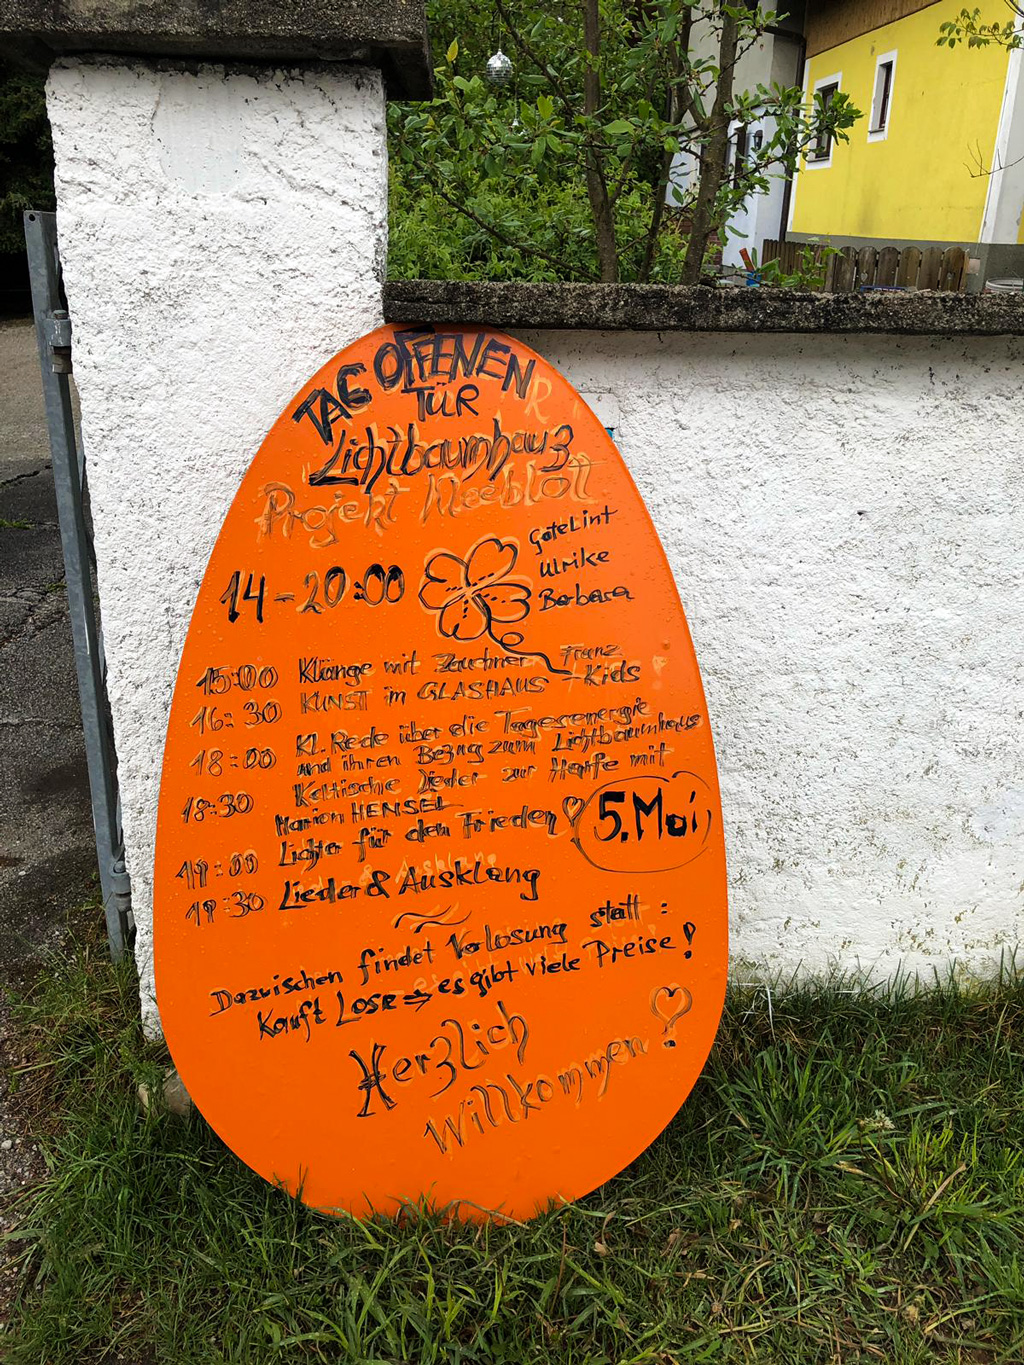 TAG OFFENEN
TÜR
Lichtbaumhaus
Projekt Kleeblatt
GöteLint
Ulrike
Barbara
14-20:00
15:00 Klänge mit Franz
16:30 KUNST im GLASHAUS + Kids
18:00 Kl. Rede über die Tagesenergie
und ihren Bezug zum Lichtbaumhaus
18:30 Keltische Lieder zur Harfe mit
Marion HENSEL
19:00 Lichter für den Frieden
5. Mai
19:30 Lieder & Ausklang
Dazwischen findet Verlosung statt :
Kauft Lose ⇒ es gibt viele Preise!
Herzlich
Willkommen!